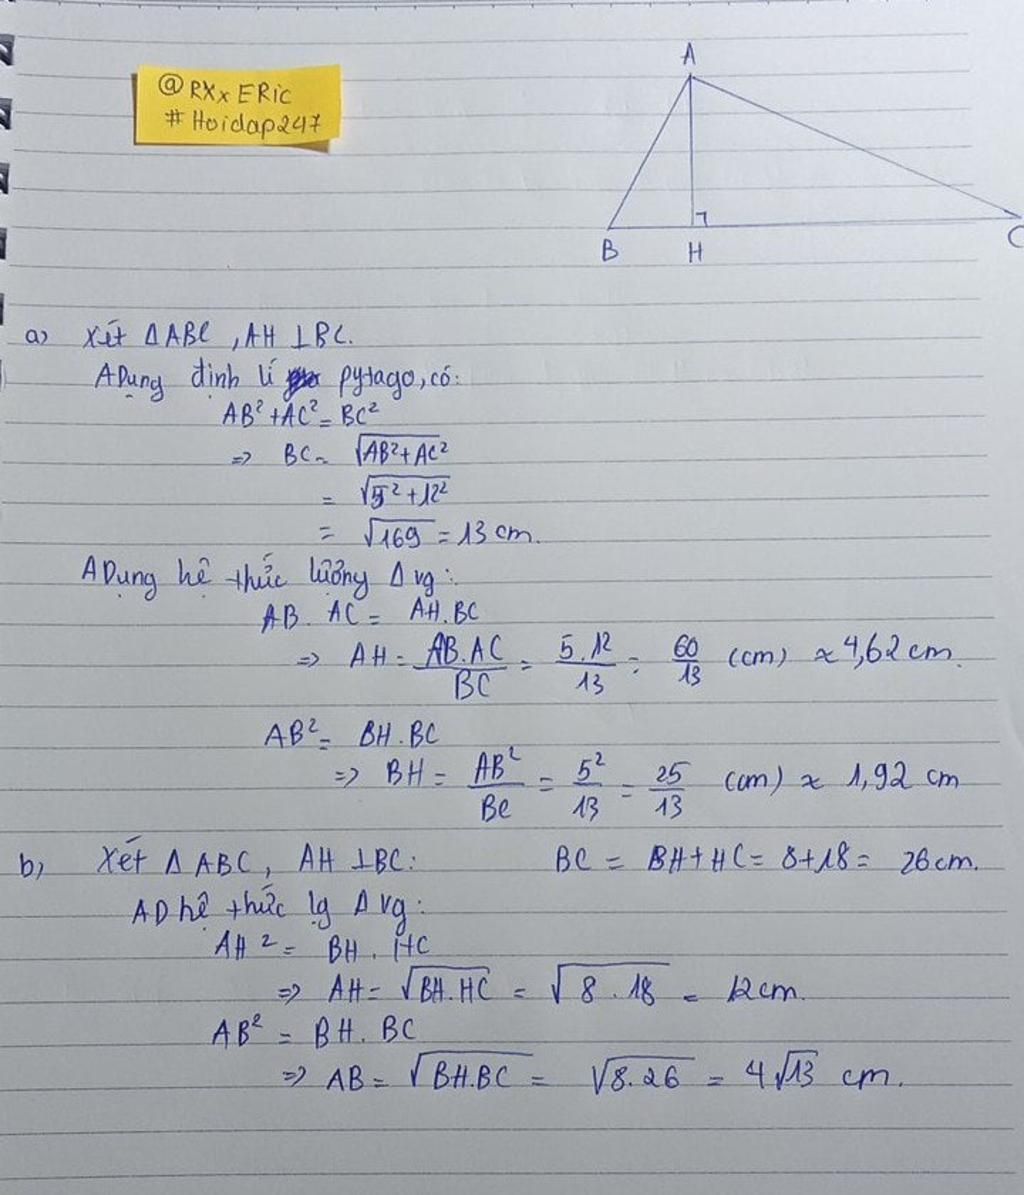 @RXx ERic
#Hoidap247
A
B
H
C
a) Xét ΔABC, AH ⊥BC.
ADụng định lí pytago, có:
AB² + AC² = BC²
=> BC = √AB² + AC²
= √5² + 12²
= √169 = 13 cm.
ADụng hệ thức lượng Δ vg:
AB. AC = AH. BC
=> AH = AB.AC/BC = 5.12/13 = 60/13 (cm) ≈ 4,62 cm.
AB² = BH. BC
=> BH = AB²/BC = 5²/13 = 25/13 (cm) ≈ 1,92 cm
b) Xét Δ ABC, AH ⊥BC: BC = BH + HC = 8+18 = 26cm.
AD hệ thức lg Δ vg:
AH² = BH. HC
=> AH = √BH.HC = √8.18 = 12cm.
AB² = BH. BC
=> AB = √BH.BC = √8.26 = 4√13 cm.